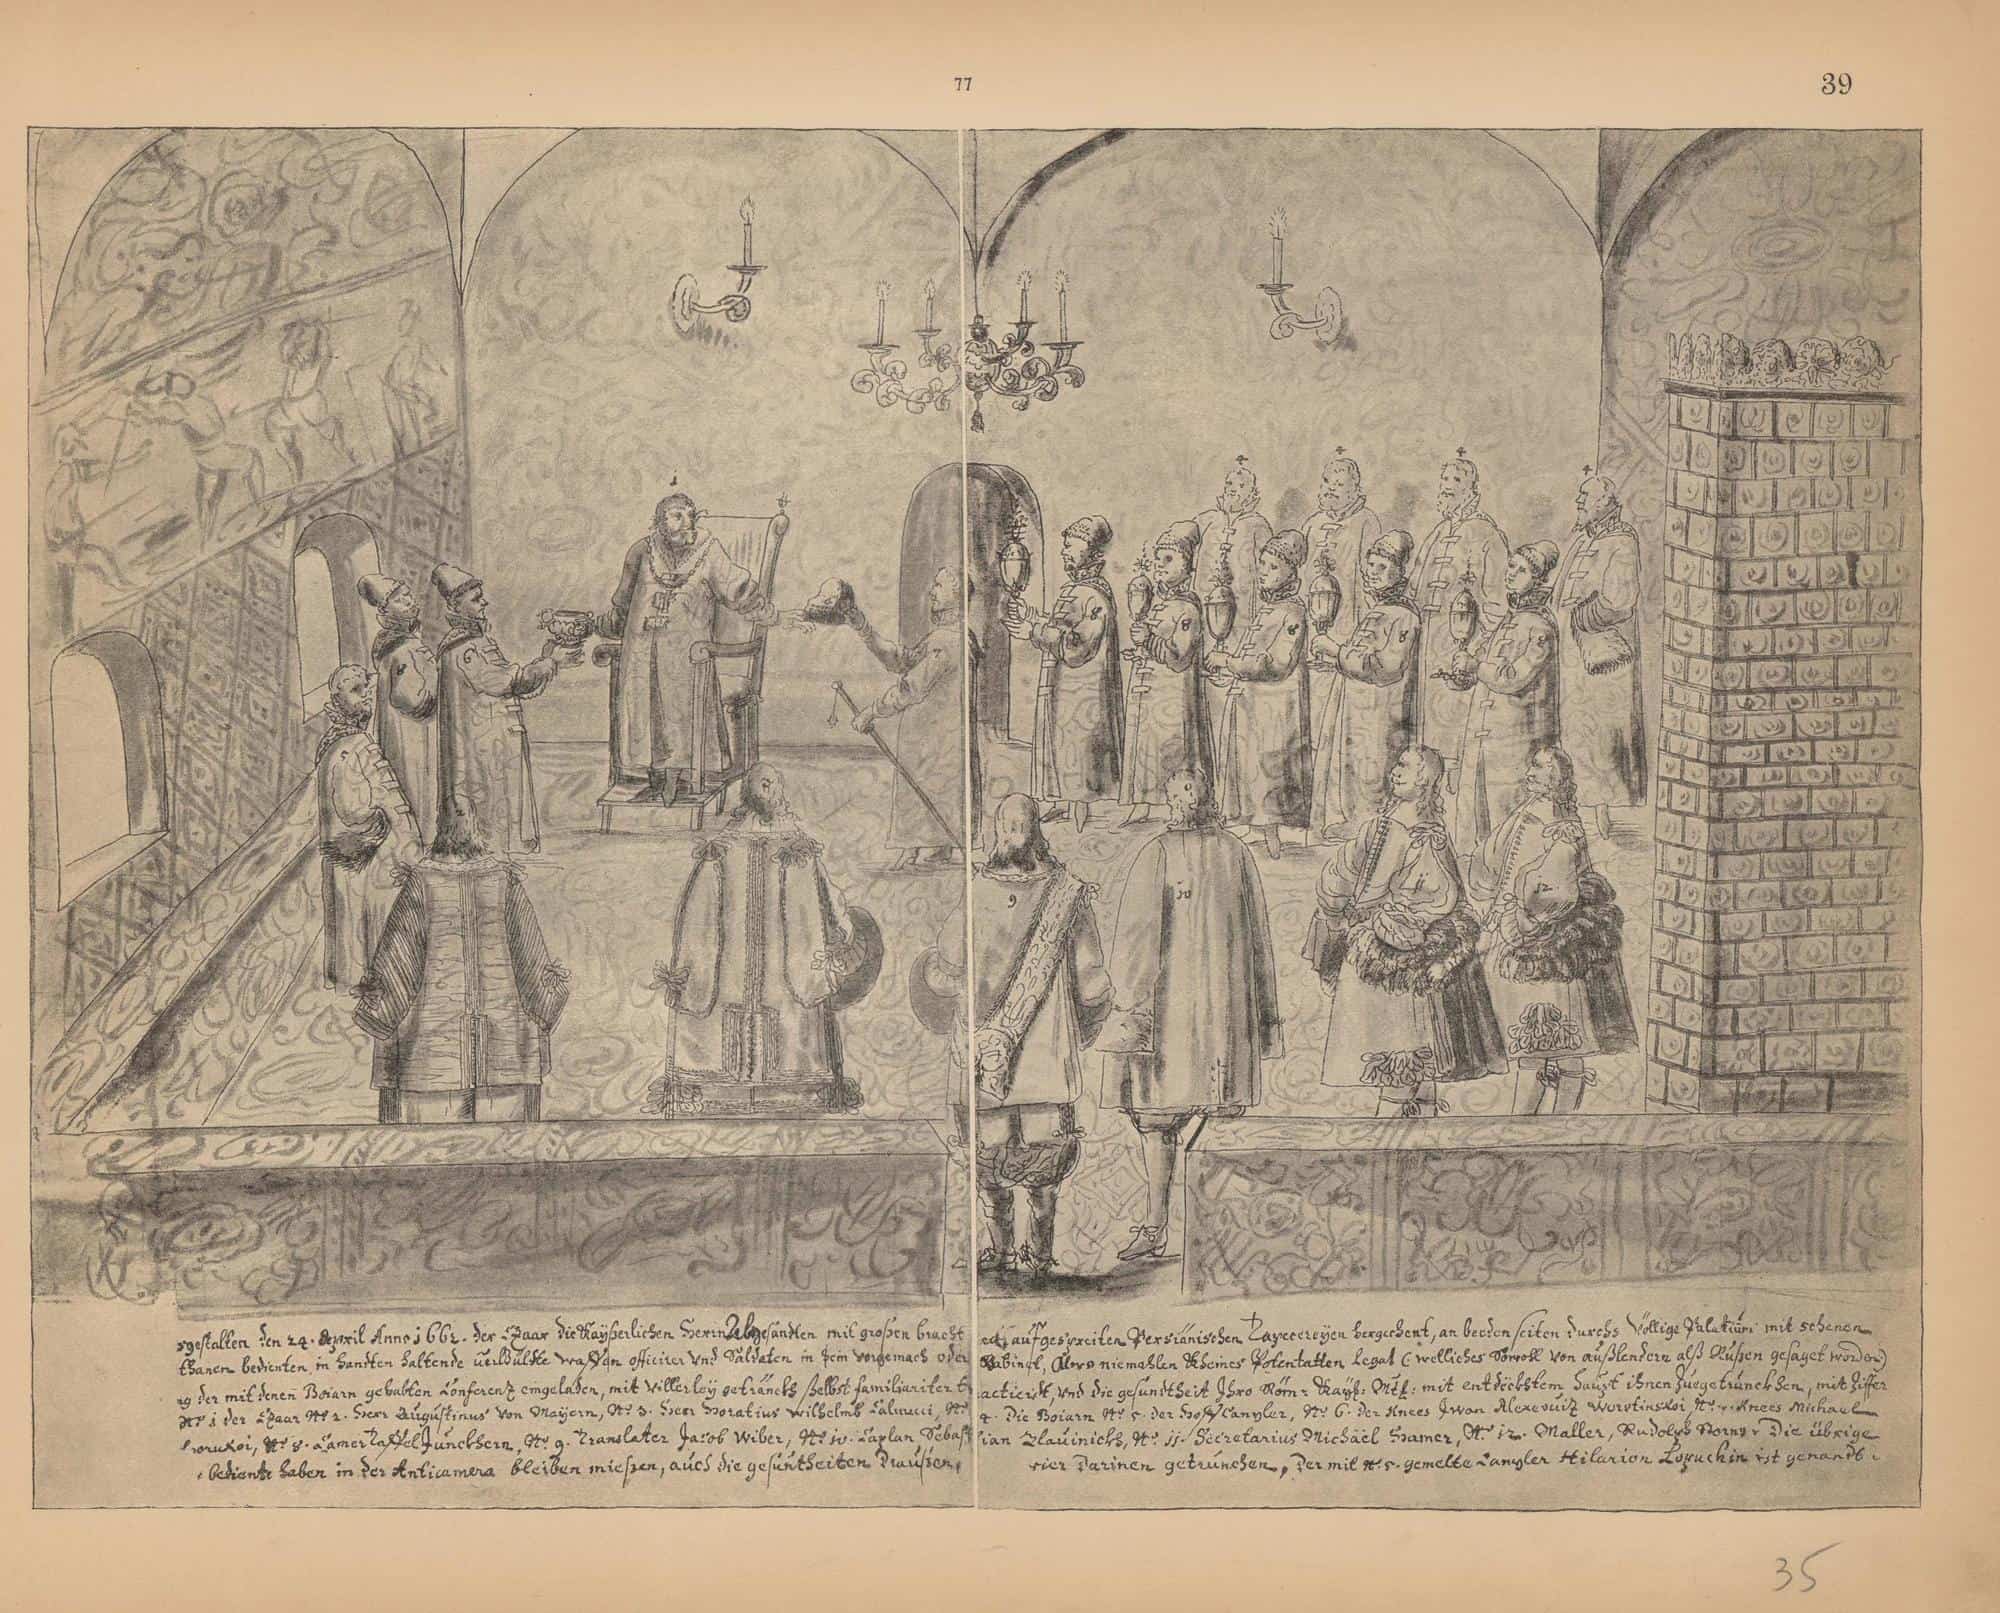 77
39
sgestalten den 24. Appril Anno 1662. der Czaar die Kaÿßerlichen Herrn Abgesandten mit großen bracht auf aufgespreiten Persianischen Tapecereÿen hergehent, an beeden seiten durchs Völlige Palatium mit schenen
thanen bedienten in handten haltende Waffen officirer vnd Saldaten in sein vorgemach oder Kabinet, Alwo niemahlen Kheines Potentatten Legat (welliches Sowoll von außlendern alß Rußen gesaget worden)
der mit denen Boiarn gehabten Conferenz eingeladen, mit getränckh selbst familiariter tractiert, vnd die gesundtheit Ihro Röm: Kaÿs: Mtt: mit entdecktem haupt ihnen zuegetrunckhen, mit Ziffer
Nº 1 der Czaar Nº 2. Herr Augustinus von Maÿern, Nº 3. Herr Horatius Wilhelmb Calucci, Nº 4. Die Boiarn Nº 5. der Canzler, Nº 6. der Knees Iwan Alexeuiz Worotinskoi, Nº 7. Knees Michael
Nº 8. Camer Taffel Junckhern, Nº 9. Translater Jacob Wiber, Nº 10. Caplan Sebastian Zlauinich, Nº 11. Secretarius Michäel Hamer, Nº 12. Maller, Rudolph Storn Die übrige
bediente haben in der Anticamera bleiben mießen, auch die gesuntheiten Draußen, vier Darinen getrunchen, Der mit Nº 5. gemelte Canzler Hilarion Lopuchin ist genandt
1
4
4
4
4
8
8
8
8
8
7
6
5
2
3
9
10
11
12
35